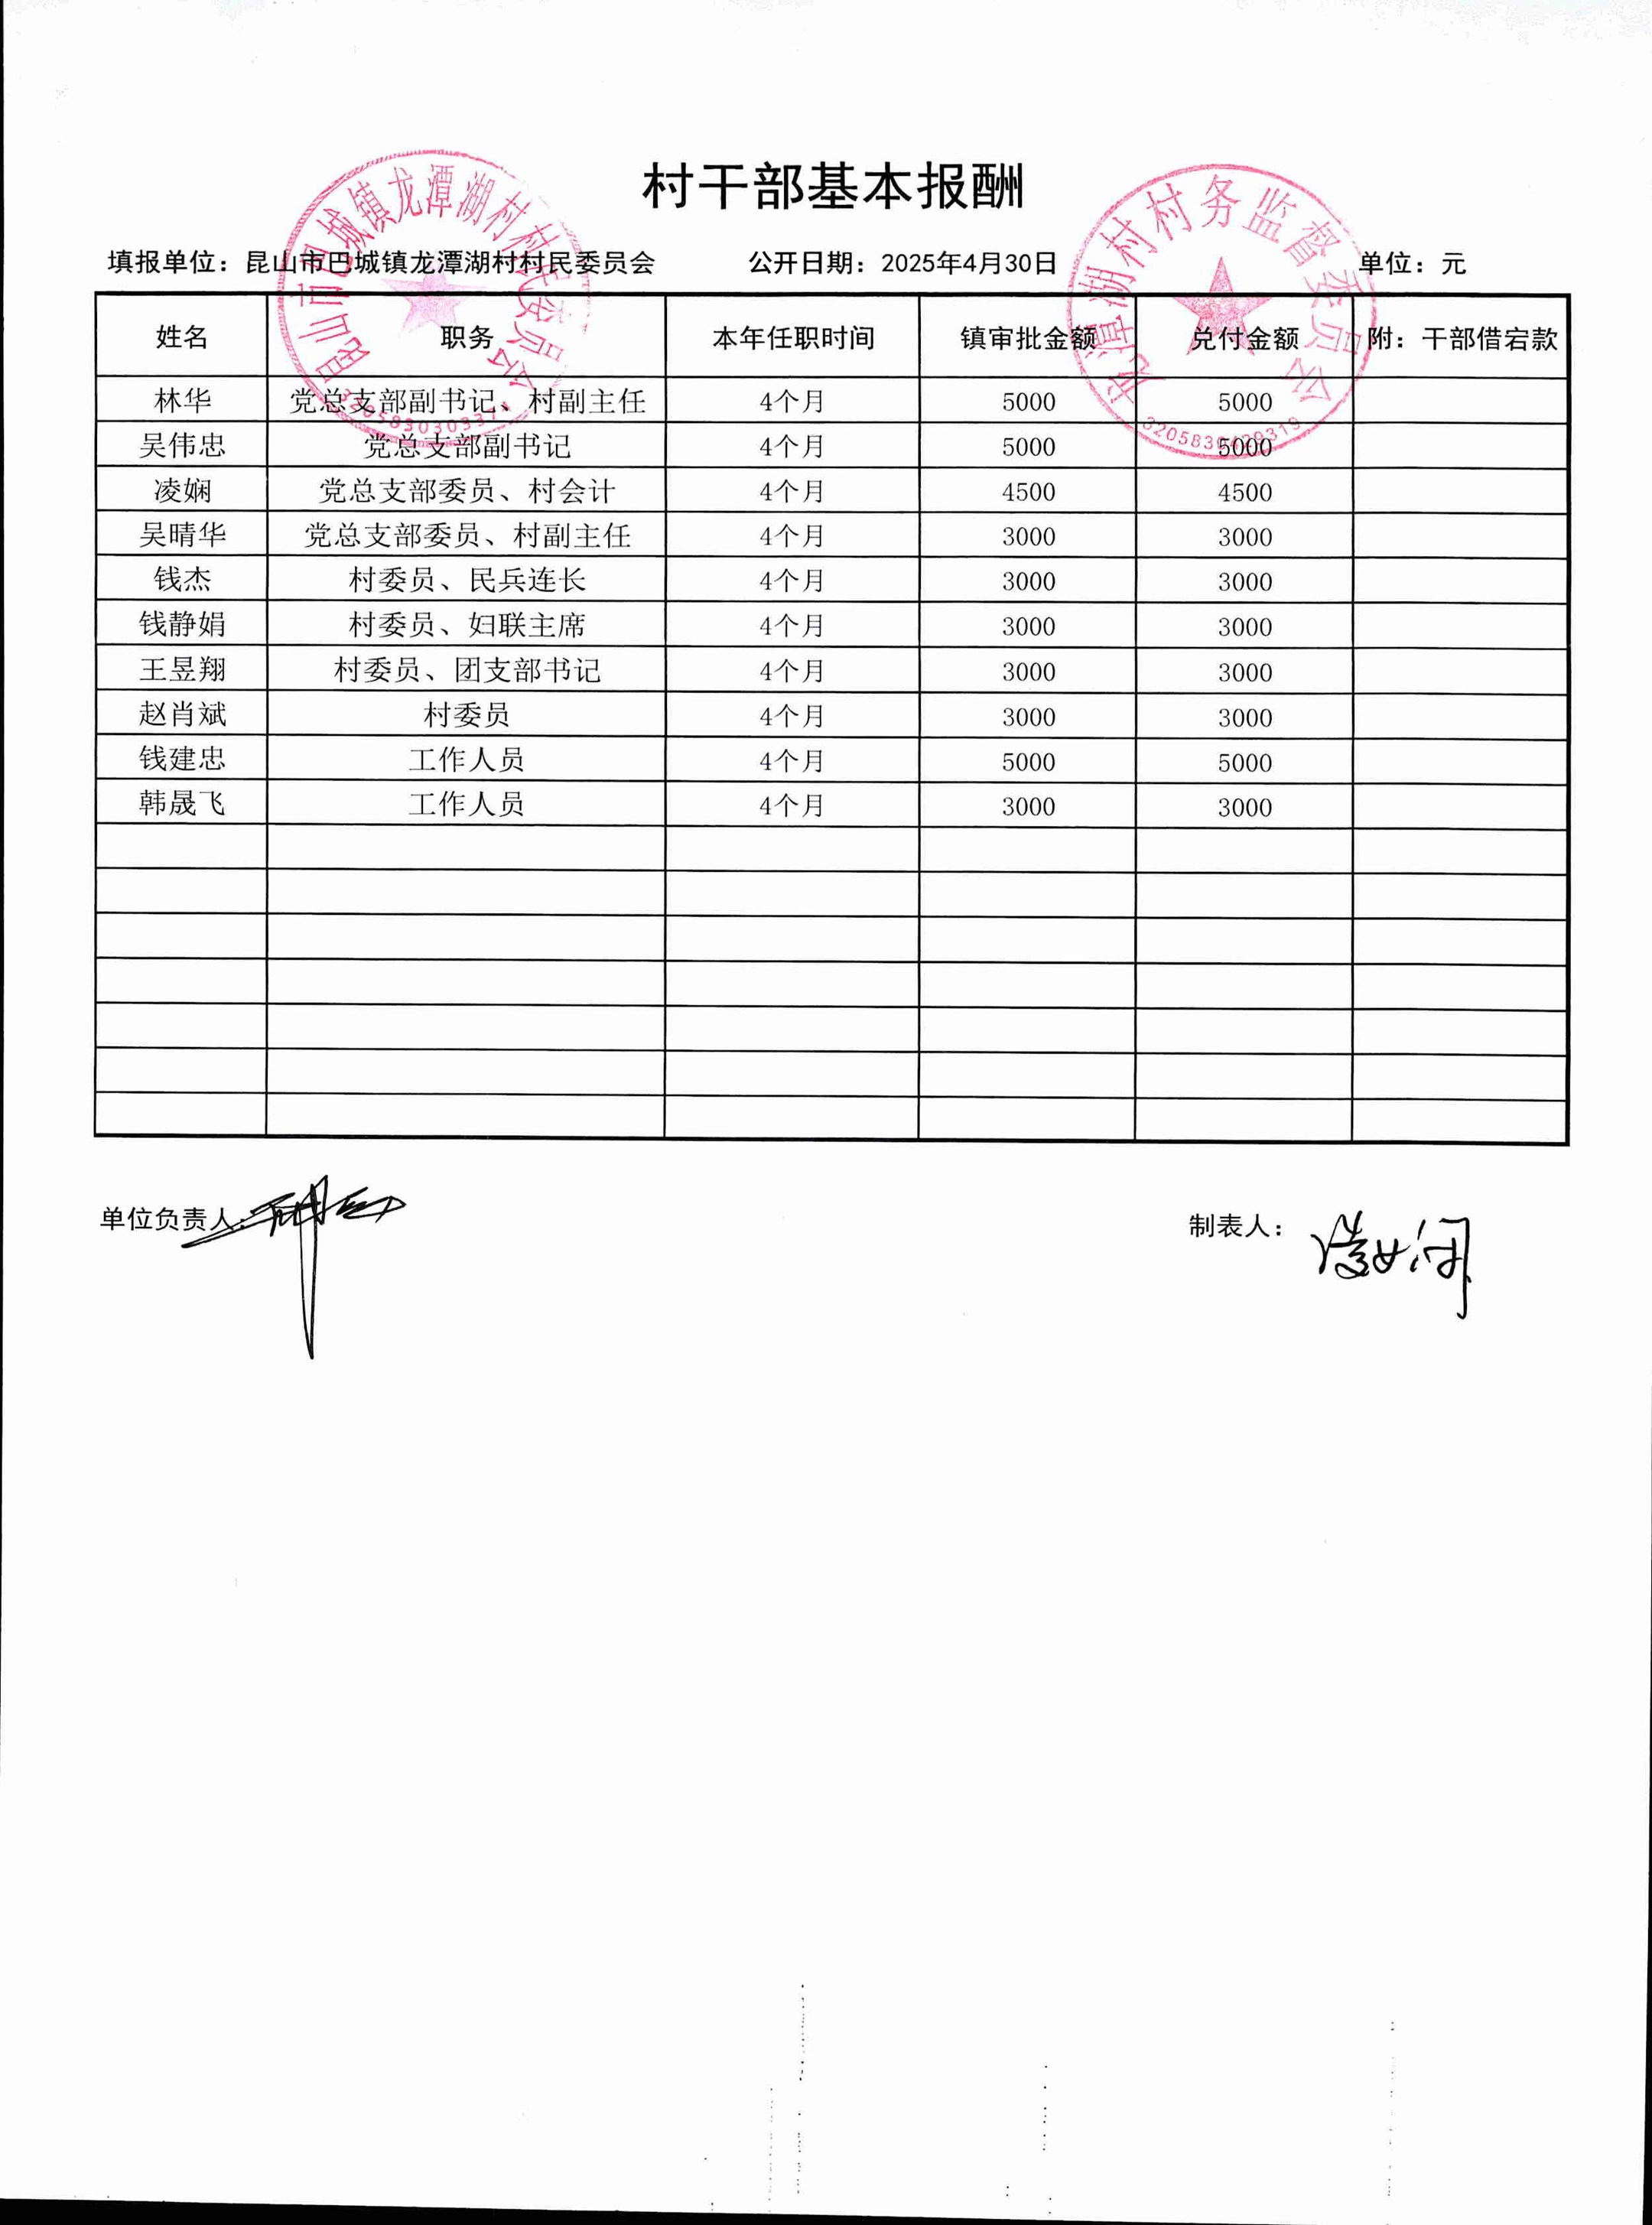 村干部基本报酬
填报单位：昆山市巴城镇龙潭湖村村民委员会 公开日期：2025年4月30日 单位：元
姓名 职务 本年任职时间 镇审批金额 兑付金额 附：干部借宕款
林华 党总支部副书记、村副主任 4个月 5000 5000
吴伟忠 党总支部副书记 4个月 5000 5000
凌娴 党总支部委员、村会计 4个月 4500 4500
吴晴华 党总支部委员、村副主任 4个月 3000 3000
钱杰 村委员、民兵连长 4个月 3000 3000
钱静娟 村委员、妇联主席 4个月 3000 3000
王昱翔 村委员、团支部书记 4个月 3000 3000
赵肖斌 村委员 4个月 3000 3000
钱建忠 工作人员 4个月 5000 5000
韩晟飞 工作人员 4个月 3000 3000
单位负责人：
制表人：凌娴
昆山市巴城镇龙潭湖村村民委员会
龙潭湖村村务监督委员会